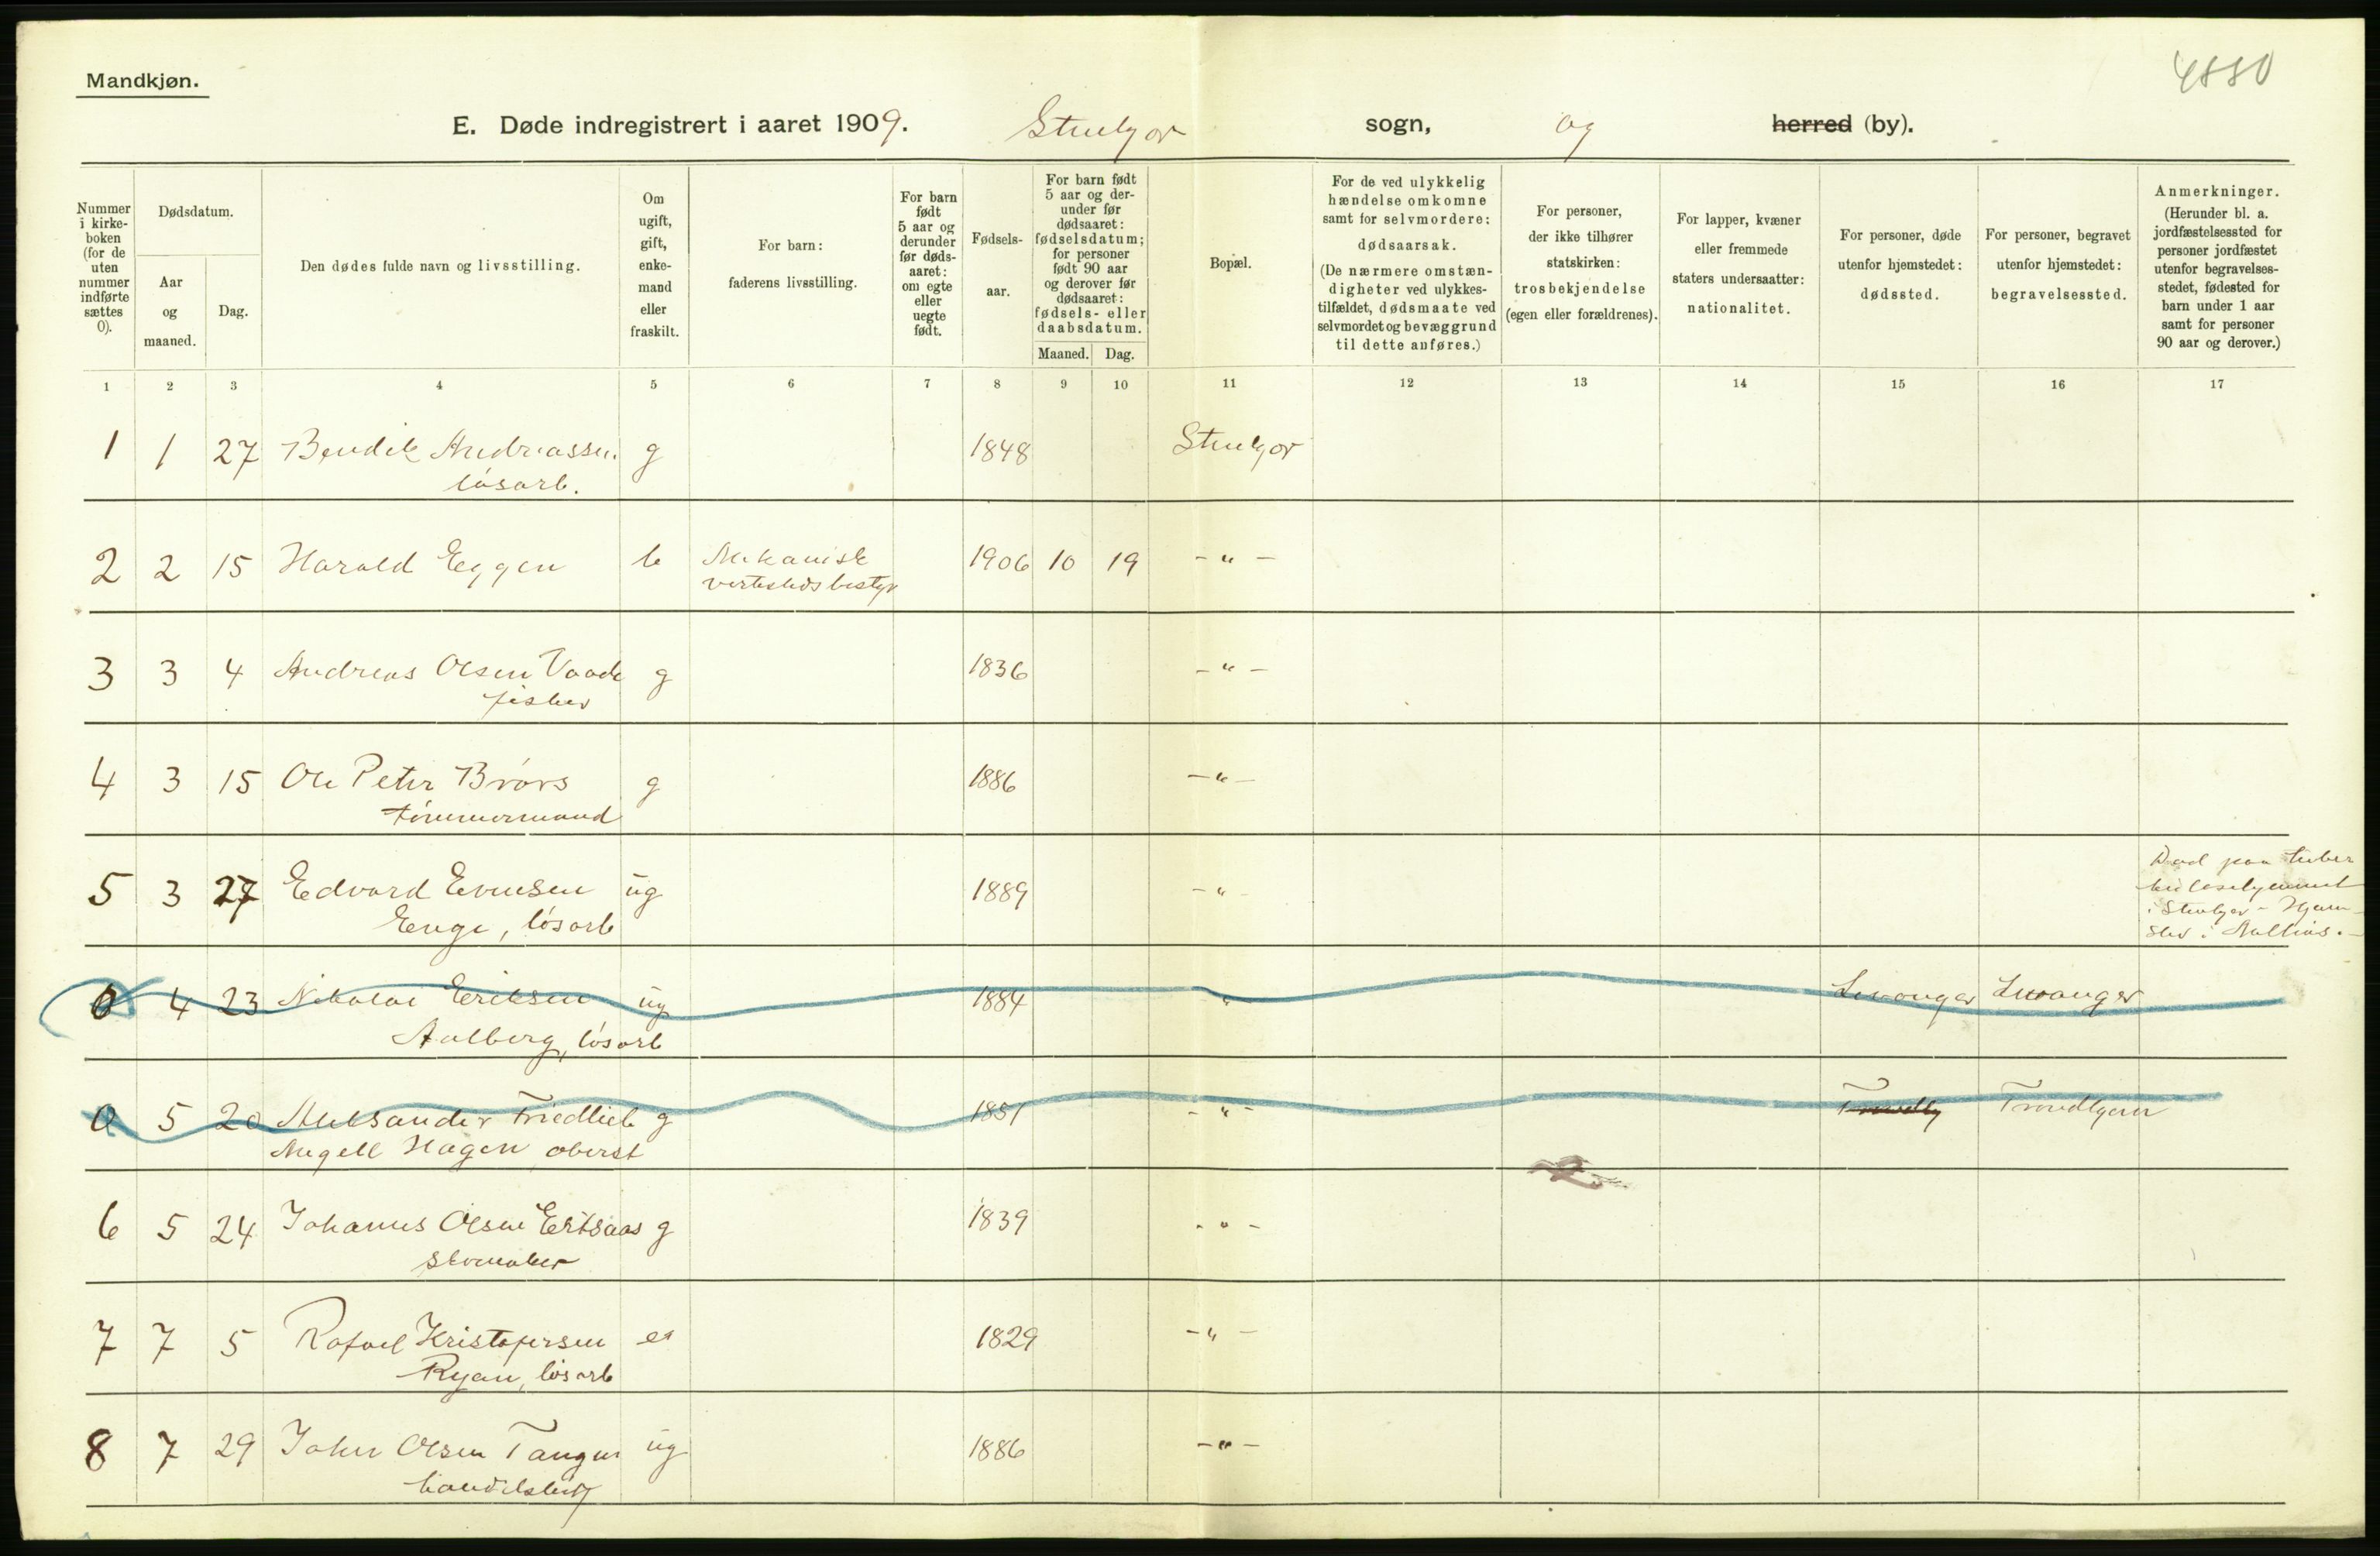 4880
Mandkjøn.
E. Døde indregistrert i aaret 1909. Stenkjær sogn, og herred (by).
Nummer i kirke-boken (for de uten nummer indførte sættes 0).
Dødsdatum.
Aar og maaned.
Dag.
Den dødes fulde navn og livsstilling.
Om ugift, gift, enke-mand eller fraskilt.
For barn: faderens livsstilling.
For barn født 5 aar og derunder før døds-aaret: om egte eller uegte født.
Fødsels-aar.
For barn født 5 aar og der-under før dødsaaret: fødselsdatum; for personer født 90 aar og derover før dødsaaret: fødsels- eller daabsdatum.
Maaned. Dag.
Bopæl.
For de ved ulykkelig hændelse omkomne samt for selvmordere: dødsaarsak. (De nærmere omstæn-digheter ved ulykkes-tilfældet, dødsmaate ved selvmordet og bevæggrund til dette anføres.)
For personer, der ikke tilhører statskirken: trosbekjendelse (egen eller forældrenes).
For lapper, kvæner eller fremmede staters undersaatter: nationalitet.
For personer, døde utenfor hjemstedet: dødssted.
For personer, begravet utenfor hjemstedet: begravelsessted.
Anmerkninger. (Herunder bl. a. jordfæstelsessted for personer jordfæstet utenfor begravelses-stedet, fødested for barn under 1 aar samt for personer 90 aar og derover.)
1 2 3 4 5 6 7 8 9 10 11 12 13 14 15 16 17
1 1 27 Bendik Andreassen g 1848 Stenkjær
løsarb.
2 2 15 Harald Eggen b Mekanisk 1906 10 19 - " -
verkstedsbestyr
3 3 4 Andreas Olsen g 1836 - " -
fisker
4 3 15 Ole Peter Brørs g 1886 - " -
tømmermand
5 3 27 Edvard Evensen ug 1889 - " - Død paa tuber
Enge, løsarb
kulosehjemmet
i Stenkjær - Hjem-
sted i
0 4 23 Nikolai Eriksen ug 1884 " Levanger Levanger
Aalberg, løsarb
0 5 20 Aleksander Friedlieb g 1851 - " - Trondhj Trondhjem
Hagen oberst
6 5 24 Johannes Olsen g 1839 - " -
skomaker
7 7 5 Rafael Kristofersen e 1829 - " -
Ryan, løsarb
8 7 29 Johan Olsen Tangen ug 1886 - " -
handelsbetj